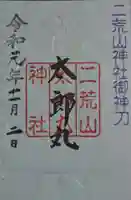 二荒山神社御神刀
二荒山
太郎丸
神社
令和元年十一月二日